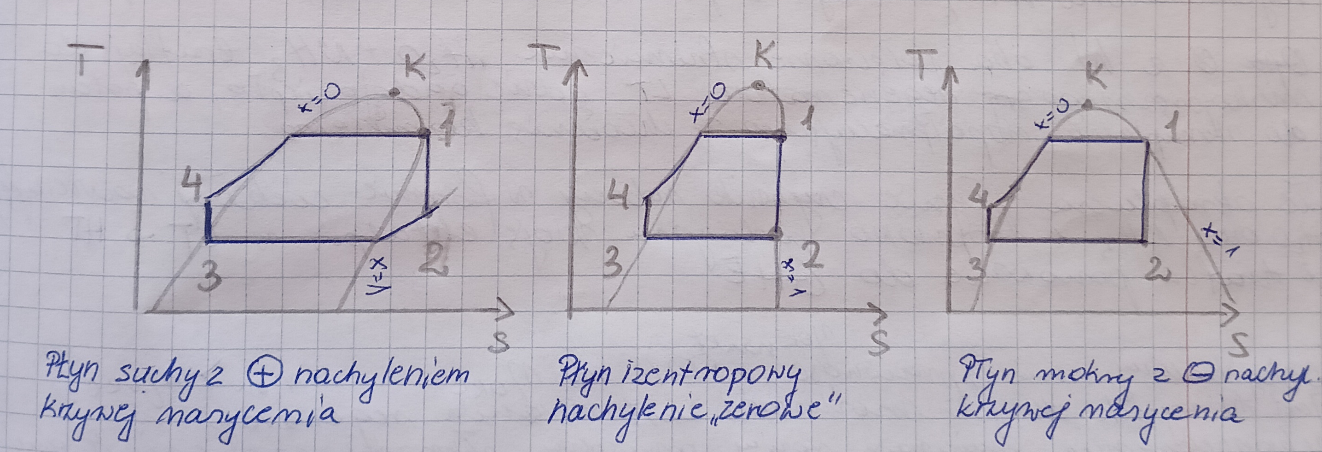 T
K
x=0
1
4
3
2
x=1
S
Płyn suchy z ⊕ nachyleniem
krzywej nasycenia
T
K
x=0
1
4
3
2
x=1
S
Płyn izentropowy
nachylenie „zerowe”
T
K
x=0
1
4
3
2
x=1
S
Płyn mokry z ⊖ nachyl.
krzywej nasycenia